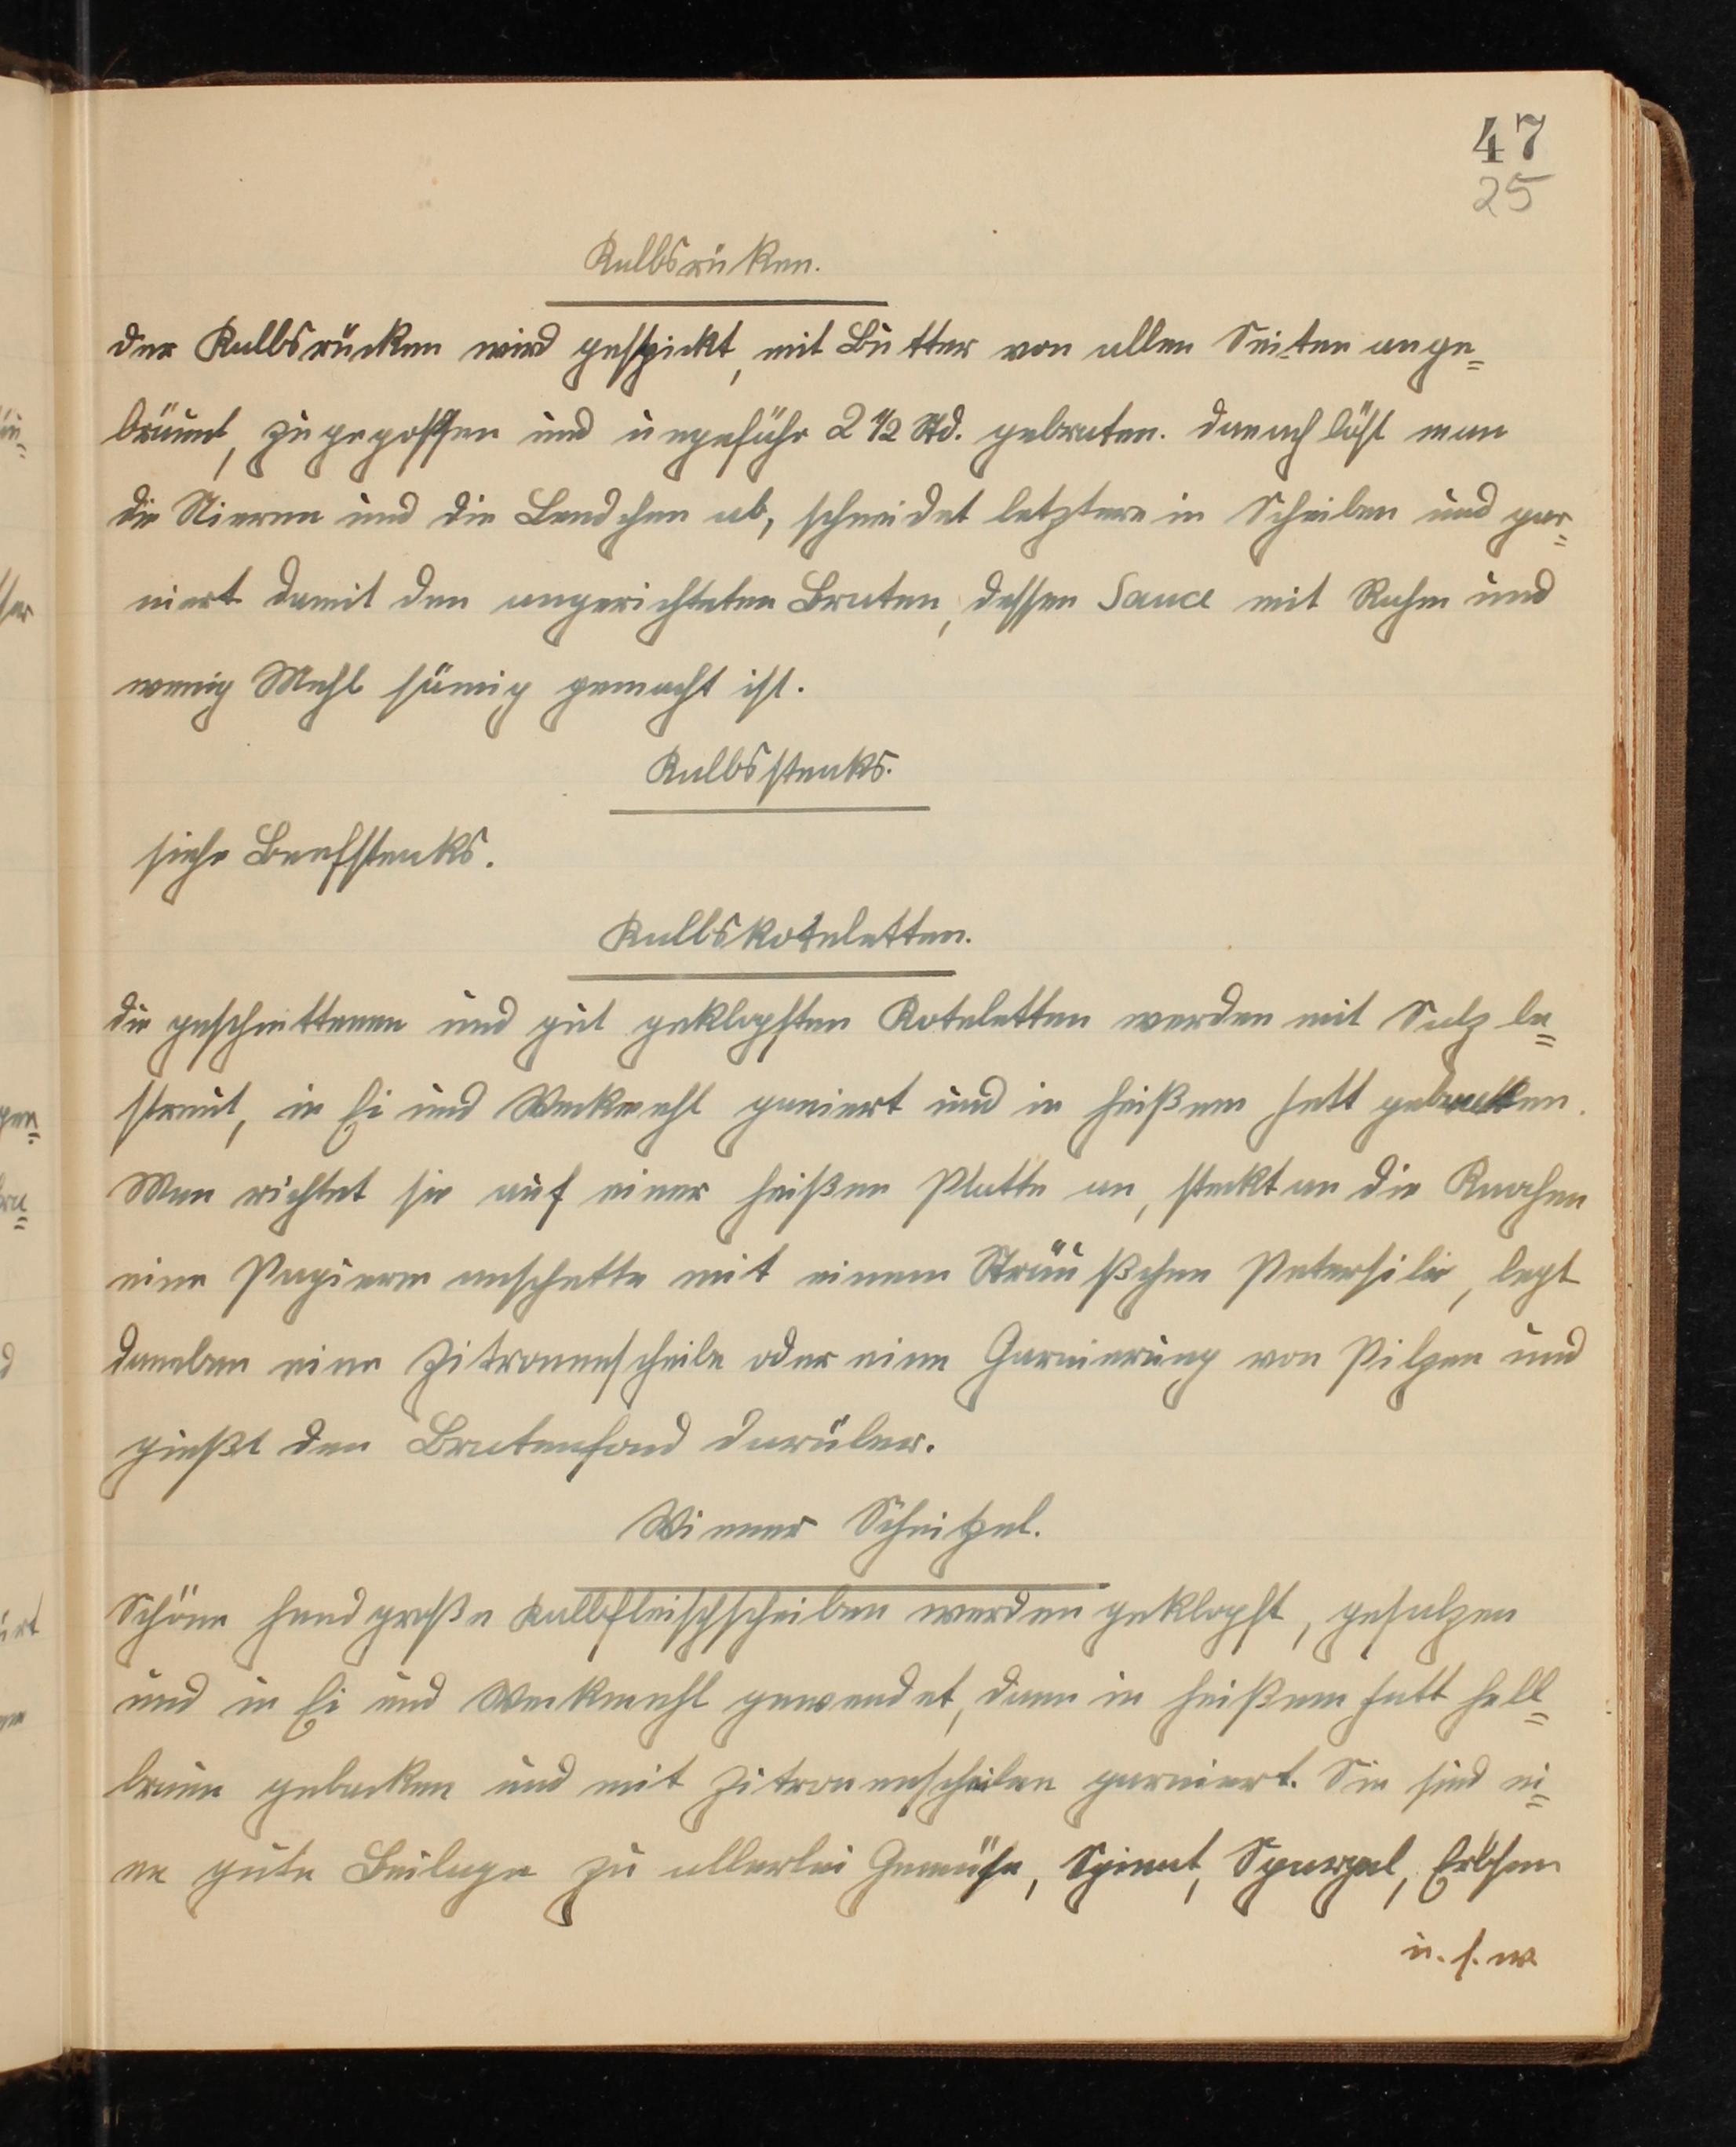 47
25
Kalbsrüken.
der Kalbsrücken wird gespickt, mit Butter von allen Seiten ange=
bräunt, zugegossen und ungefähr 2 1/2 Std. gebraten. danach löst man
die Nieren und die Lendchen ab, schneidet letztere in Scheiben und gar=
niert damit den angerichteten Braten, dessen Sauce mit Rahm und
wenig Mehl sämig gemacht ist.
Kalbssteaks.
siehe Beefsteaks.
Kalbskoteletten.
die geschnittenen und gut geklopften Koteletten werden mit Salz be=
streut, in Ei und Weckmehl paniert und in heißem Fett gebacken.
Man richtet sie auf einer heißen Platte an, steckt an die Knochen
eine Papiermanschette mit einem Sträußchen Petersilie, legt
daneben eine Zitronenscheibe oder eine Garnierung von Pilzen und
gießt den Bratenfond darüber.
Wiener Schnitzel.
Schöne handgroße Kalbfleischscheiben werden geklopft, gesalzen
und in Ei und Weckmehl gewendet, dann in heißem Fett hell=
braun gebacken und mit Zitronenscheiben garniert. Sie sind ei=
ne gute Beilage zu allerlei Gemüse, Spinat, Spargel, Erbsen
u. s. w.